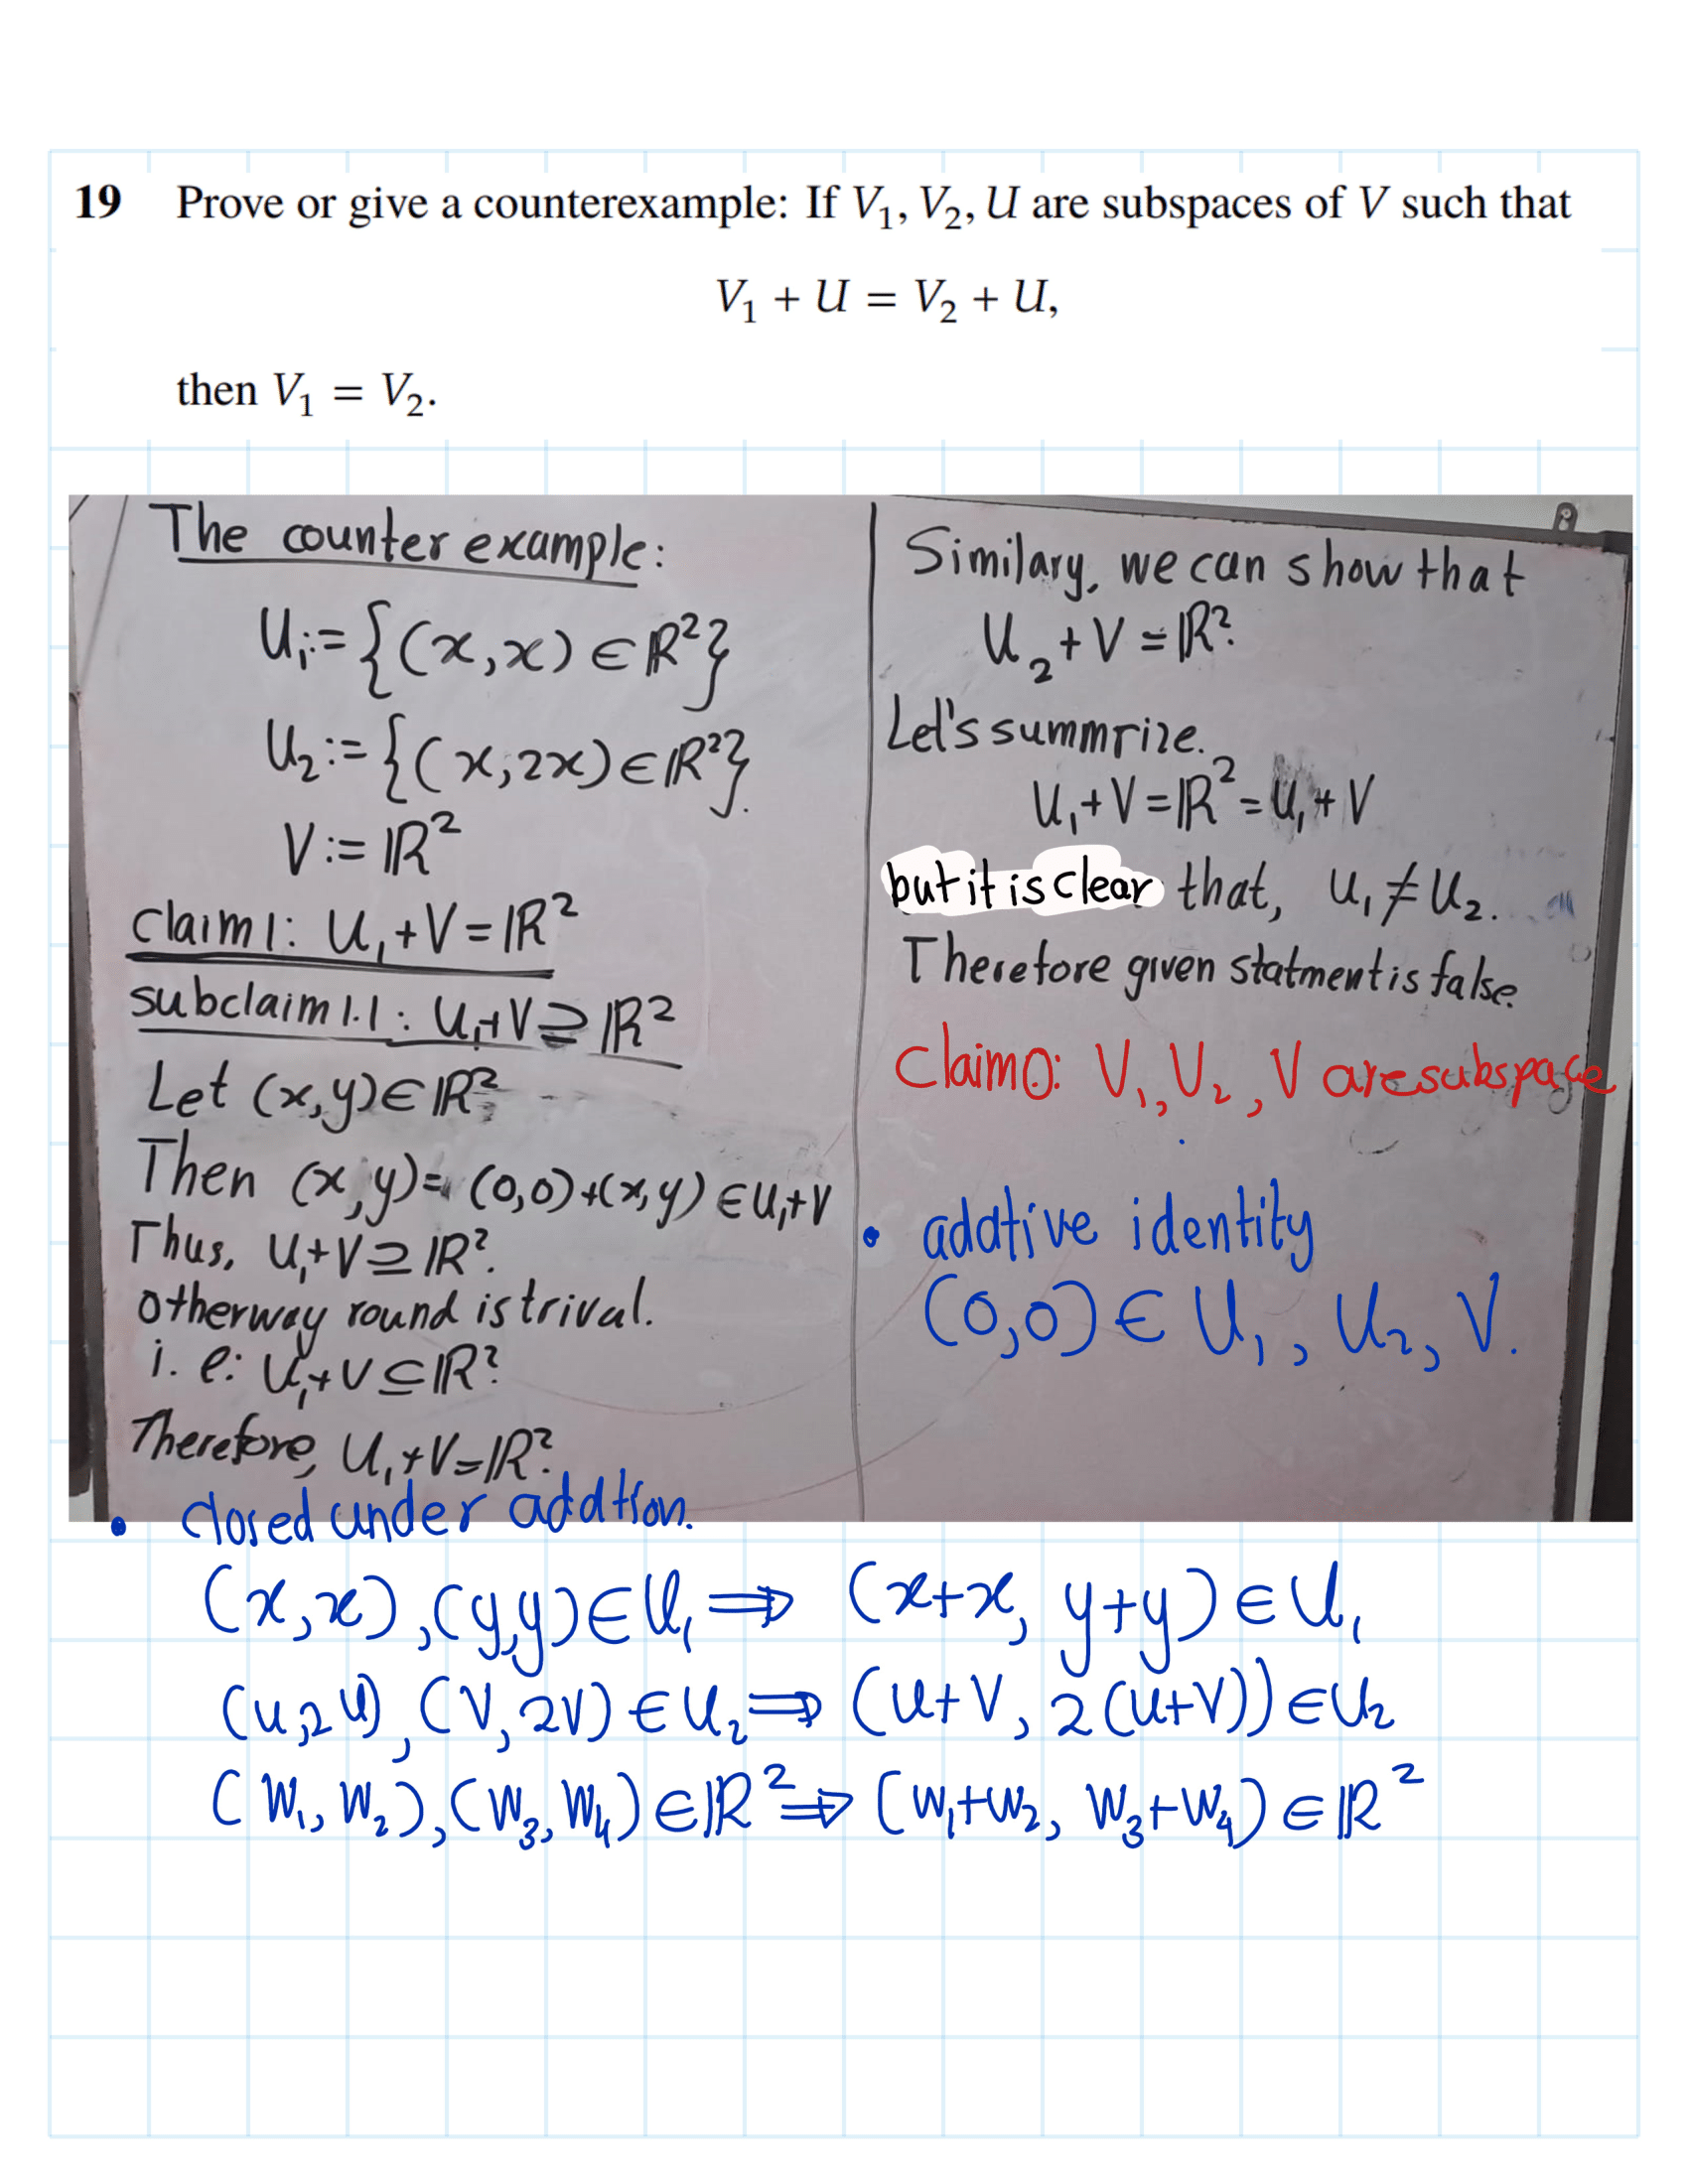 19 Prove or give a counterexample: If V₁, V₂, U are subspaces of V such that
V₁ + U = V₂ + U,
then V₁ = V₂.
The counter example:
U₁:= {(x,x) ∈ ℝ²}
U₂:= {(x,2x) ∈ ℝ²}.
V:= ℝ²
claim 1: U₁+V = ℝ²
subclaim 1.1: U₁+V ⊇ ℝ²
Let (x,y) ∈ ℝ².
Then (x,y) = (0,0)+(x,y) ∈ U₁+V
Thus, U₁+V ⊇ ℝ².
otherway round is trival.
i.e: U₁+V ⊆ ℝ².
Therefore, U₁+V = ℝ².
Similary, we can show that
U₂+V = ℝ².
Let's summrize.
U₁+V = ℝ² = U₁+V
but it is clear that, U₁ ≠ U₂.
Therefore given statment is false.
Claim 0: V₁, V₂, V are subspace
• addtive identity
(0,0) ∈ U₁, U₂, V.
• closed under addtion.
(x,x), (y,y) ∈ U₁ ⇒ (x+x, y+y) ∈ U₁
(u,2u), (v,2v) ∈ U₂ ⇒ (u+v, 2(u+v)) ∈ U₂
(w₁, w₂), (w₃, w₄) ∈ ℝ² ⇒ (w₁+w₂, w₃+w₄) ∈ ℝ²